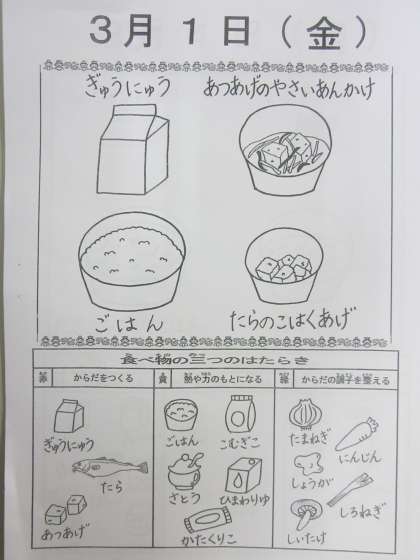 3月1日(金)
ぎゅうにゅう
あつあげのやさいあんかけ
ごはん
たらのこはくあげ
食べ物の三つのはたらき
赤 からだをつくる
黄 熱や力のもとになる
緑 からだの調子を整える
ぎゅうにゅう
たら
あつあげ
ごはん
こむぎこ
さとう
ひまわりゆ
かたくりこ
たまねぎ
にんじん
しょうが
しろねぎ
しいたけ